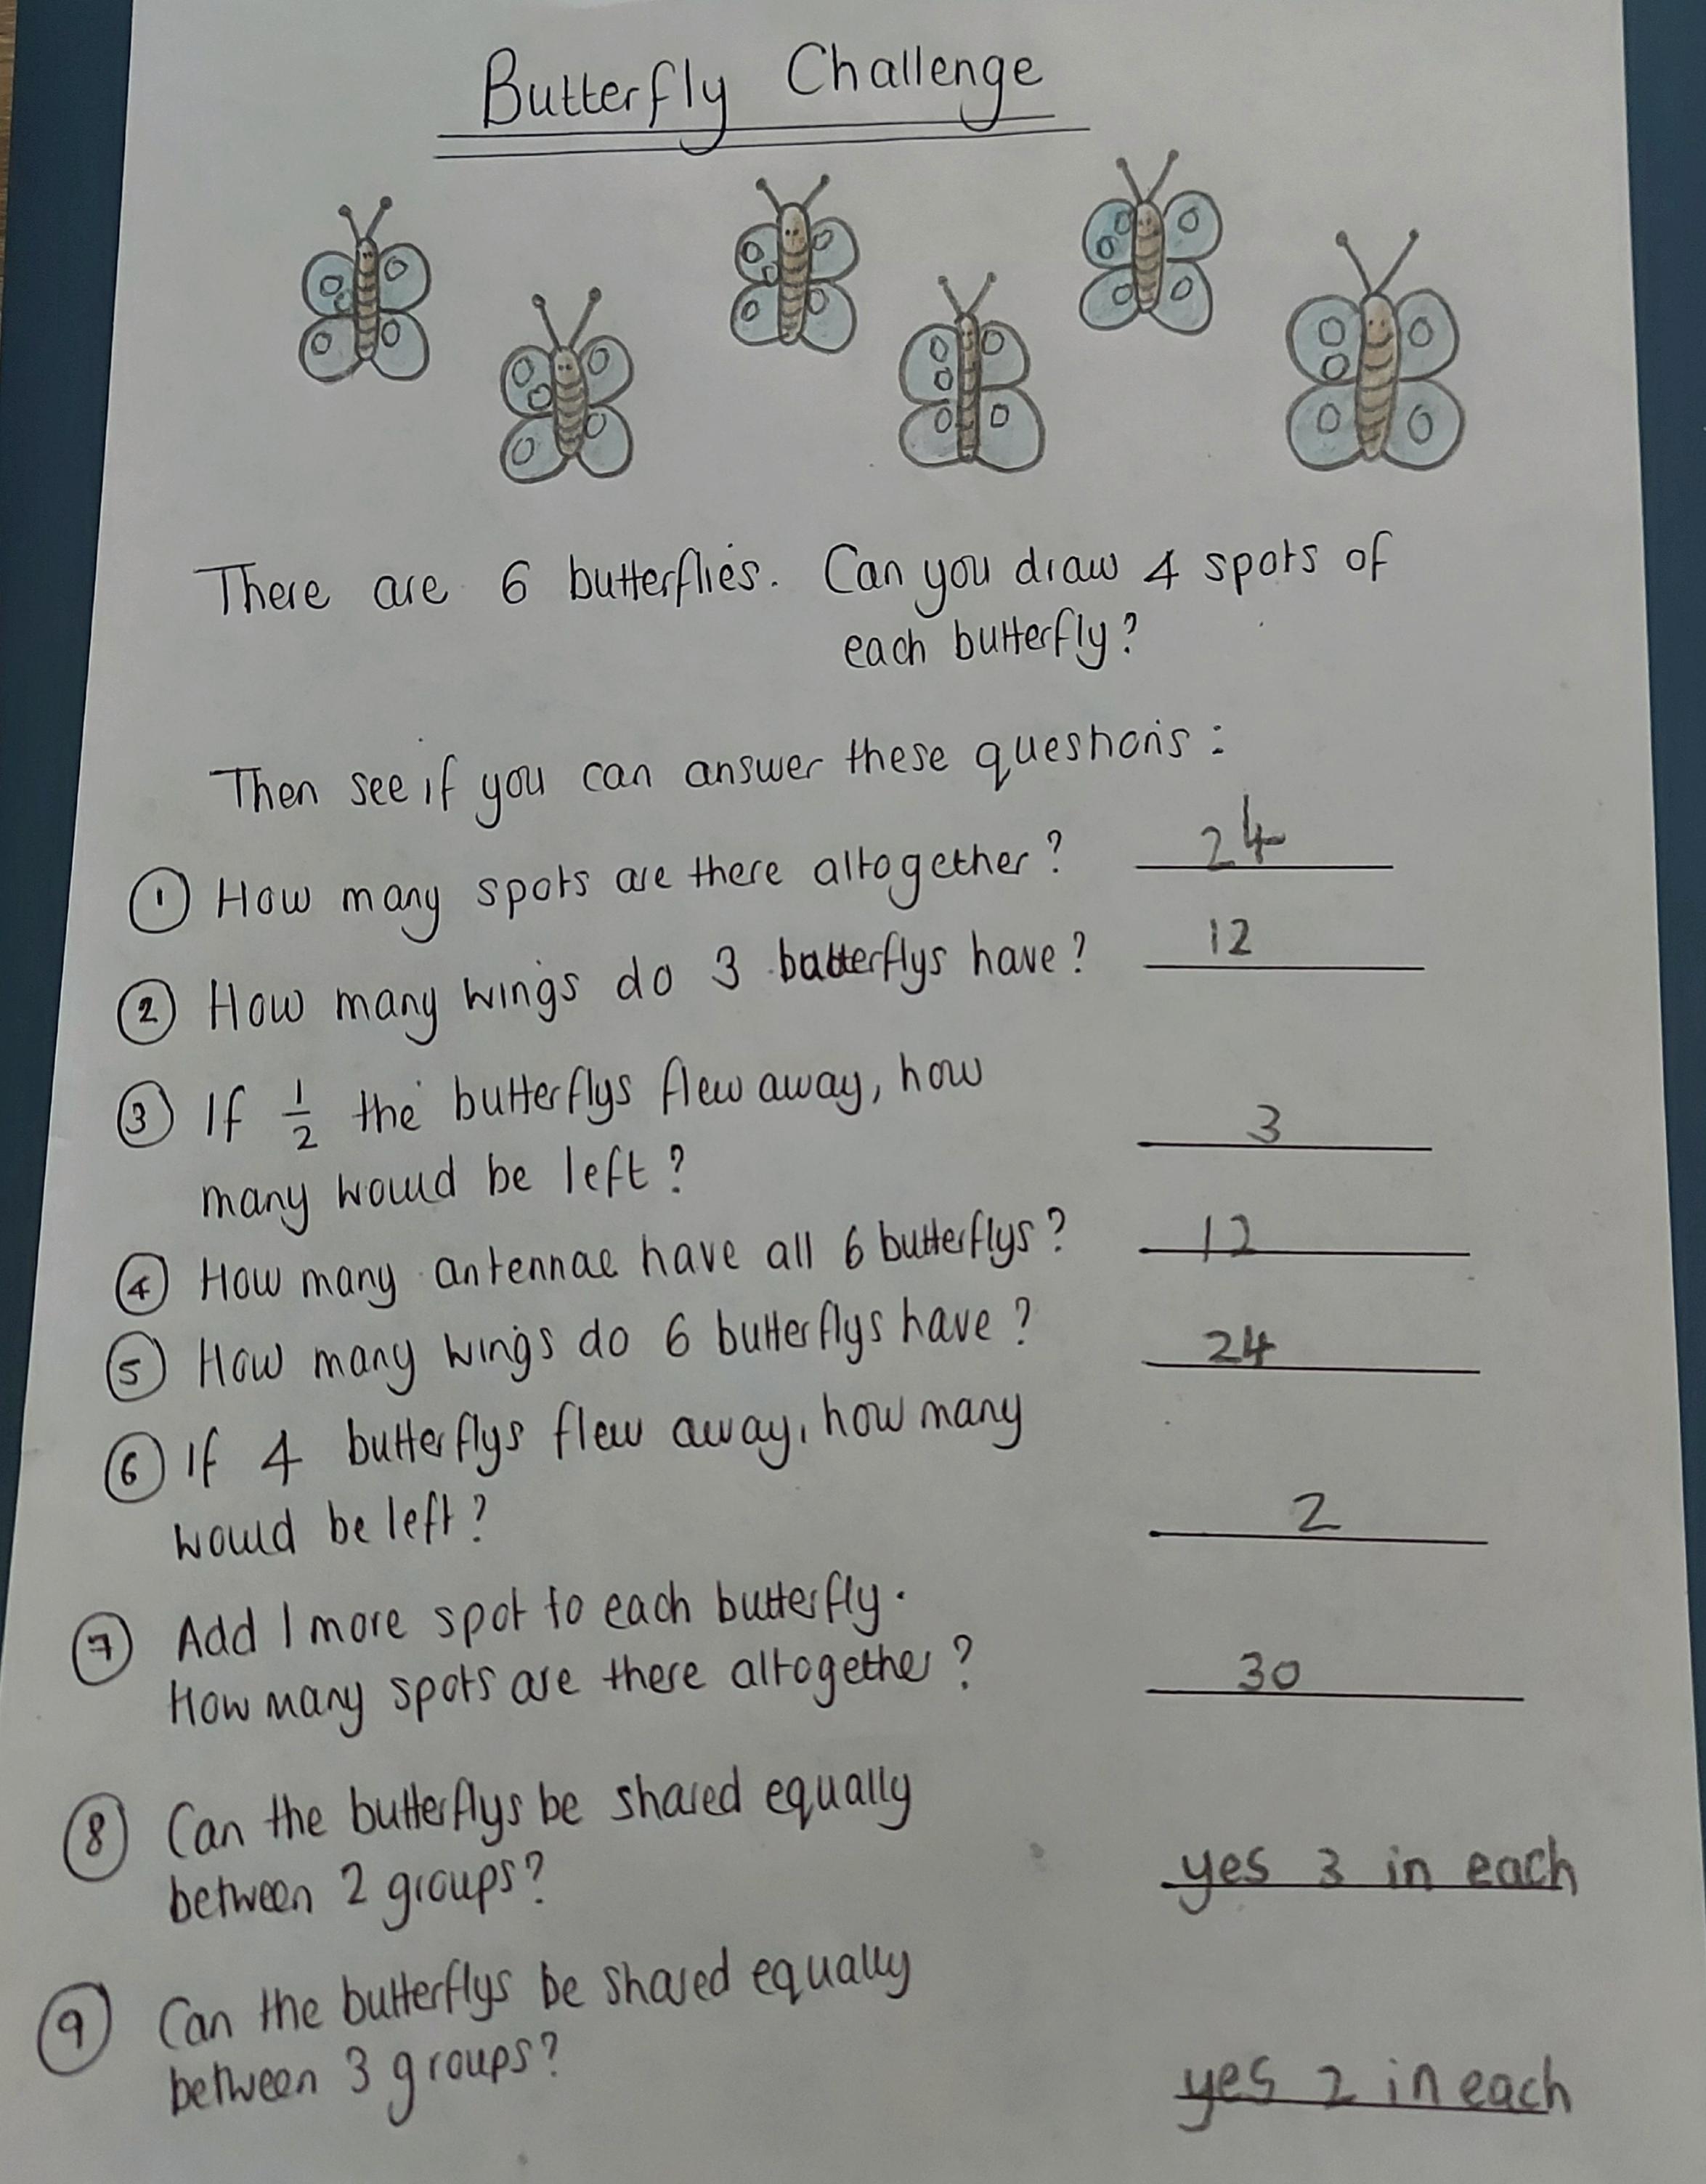 Butterfly Challenge
There are 6 butterflies. Can you draw 4 spots of
each butterfly?
Then see if you can answer these questions:
1 How many spots are there altogether? 24
2 How many wings do 3 butterflys have? 12
3 If 1/2 the butterflys flew away, how
many would be left? 3
4 How many antennae have all 6 butterflys? 12
5 How many wings do 6 butterflys have? 24
6 If 4 butterflys flew away, how many
would be left? 2
7 Add 1 more spot to each butterfly.
How many spots are there altogether? 30
8 Can the butterflys be shared equally
between 2 groups? yes 3 in each
9 Can the butterflys be shared equally
between 3 groups? yes 2 in each